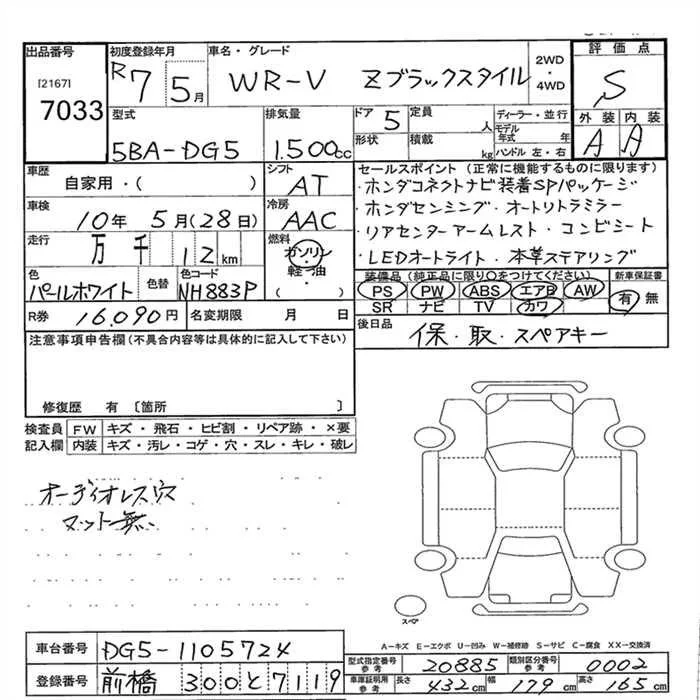 出品番号
[2167]
7033
初度登録年月
R7 5月
車名・グレード
WR-V Zブラックスタイル
2WD
・
4WD
評価点
S
型式
5BA-DG5
排気量
1.500cc
ドア 5
形状
定員 人
積載 kg
ディーラー・並行
モデル年式 年
ハンドル 左・右
外装 内装
A A
車歴
自家用・( )
シフト
AT
車検
10年 5月(28日)
冷房
AAC
走行
万 千 12km
燃料
ガソリン
・
軽油
( )
色
パールホワイト
色替
色コード
NH883P
R券 16,090円
名変期限 月 日
セールスポイント(正常に機能するものに限ります)
・ホンダコネクトナビ装着SPパッケージ
・ホンダセンシング・オートリトラミラー
・リアセンターアームレスト・コンビシート
・LEDオートライト・本革ステアリング
装備品(純正品に限り○をつけてください)
PS PW ABS エアB AW
SR ナビ TV カワ
新車保証書
有 無
後日品
保・取・スペアキー
注意事項申告欄(不具合内容等は具体的に記入して下さい)
修復歴 有 〔箇所 〕
検査員記入欄
FW キズ・飛石・ヒビ割・リペア跡・×要
内装 キズ・汚レ・コゲ・穴・スレ・キレ・破レ
オーディオレス穴
マット無
スペア
A－キズ E－エクボ U－凹み W－補修跡 S－サビ C－腐食 XX－交換済
車台番号 DG5-1105724
登録番号 前橋 300と7119
型式指定番号 参考 20885
類別区分番号 参考 0002
車庫証明用 参考 長さ 432cm 幅 179cm 高さ 165cm